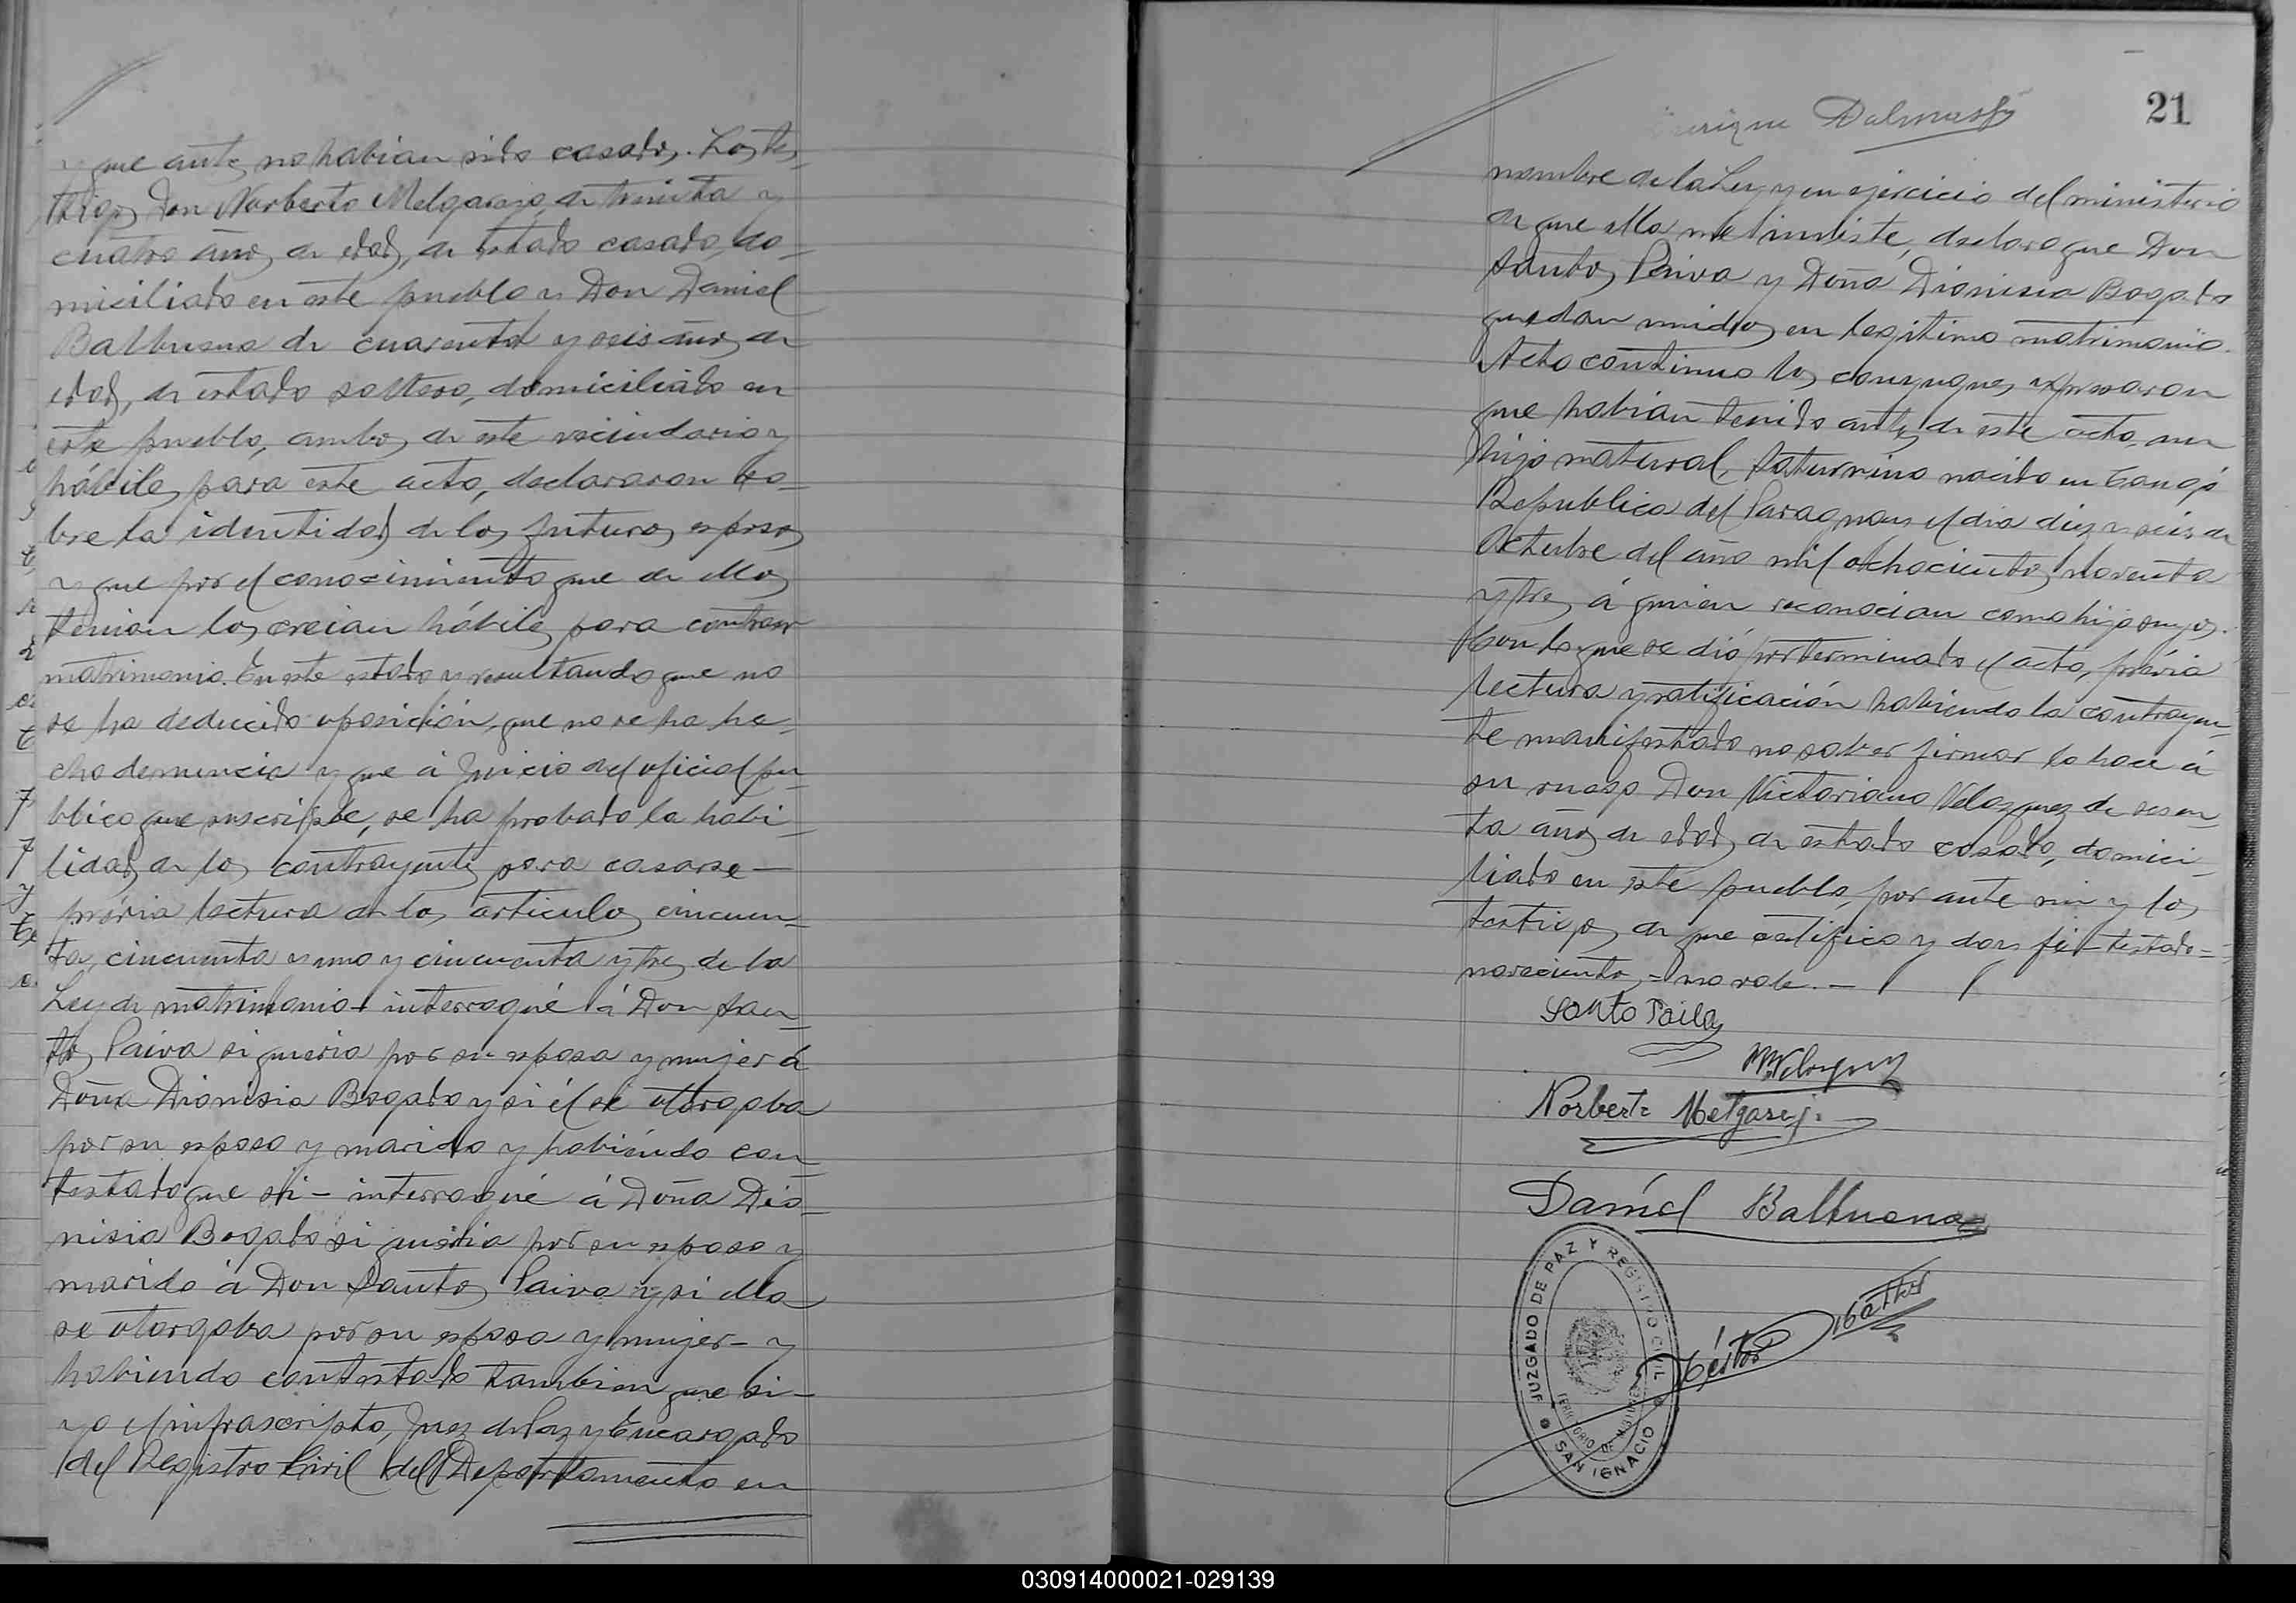 y que antes no habian sido casados. Los tes-
tigos Don Norberto Melgarejo, de treinta y
cuatro años de edad, de estado casado, do-
miciliado en este pueblo y Don Daniel
Balbuena de cuarenta y seis años de
edad, de estado soltero, domiciliado en
este pueblo, ambos de este vecindario y
hábiles para este acto, declararon so-
bre la identidad de los futuros esposos
y que por el conocimiento que de ellos
tenian los creian hábiles para contraer
matrimonio. En este estado y resultando que no
se ha deducido oposición, que no se ha he-
cho denuncia y que á juicio del oficial pu-
blico que suscripbe, se ha probado la habi-
lidad de los contrayentes para casarse—
prévia lectura de los articulos cincuen-
ta, cincuenta y uno y cincuenta y tres de la
Ley de matrimonio interrogué á Don San-
tos Paiva si queria por su esposa y mujer á
Doña Dionisia Bogado y si él se otorgaba
por su esposo y marido y habiéndo con-
testado que si— interrogué á Doña Dio-
nisia Bogado si queria por su esposo y
marido á Don Santos Paiva y si ella
se otorgaba por su esposa y mujer— y
habiendo contestado tambien que si—
yo el infrascripto, Juez de Paz y Encargado
del Registro Civil del Departamento en
21
Dalmasso
nombre de la Ley y en ejercicio del ministerio
de que ella me inviste, declaro que Don
Santos Paiva y Doña Dionisia Bogado
quedan unidos en legitimo matrimonio.
Acto continuo los conyugues expresaron
que habian tenido antes de este acto, un
hijo natural, Saturnino nacido en
Republica del Paraguay el dia diez y seis de
Octubre del año mil ochocientos noventa
y tres á quien reconocian como hijo suyo.
Con lo que se dió por terminado el acto, prévia
lectura y ratificación habiendo la contrayen-
te manifestado no saber firmar lo hace á
su ruego Don Victoriano Velazquez de sesen-
ta años de edad, de estado casado, domici-
liado en este pueblo, por ante mi y los
testigos de que certifico y doy fé—testado=
novecientos=no vale.—
Santo Paiba
V. Velazquez
Norberto Melgarejo
Daniel Balbuena
JUZGADO DE PAZ Y REGISTRO CIVIL
TERRITORIO DE MISIONES
SAN IGNACIO
Néstor
030914000021-029139